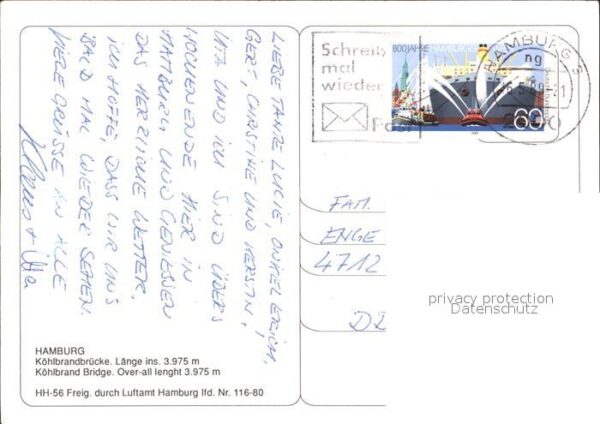 LIEBE TANTE LUCIE, ONKEL ERICH,
GERT, CHRISTINE UND KERSTIN!
UTA UND ICH SIND ÜBERS
WOCHENENDE HIER IN
HAMBURG UND GENIESSEN
DAS HERRLICHE WETTER.
ICH HOFFE, DASS WIR UNS
BALD MAL WIEDER SEHEN.
VIELE GRÜSSE AN ALLE
Klaus + Uta
800 JAHRE HAMBURGER
60
Schreib
mal
wieder
Post
HAMBURG
FAM.
ENGE
4712
privacy protection
Datenschutz
HAMBURG
Köhlbrandbrücke. Länge ins. 3.975 m
Köhlbrand Bridge. Over-all lenght 3.975 m
HH-56 Freig. durch Luftamt Hamburg lfd. Nr. 116-80